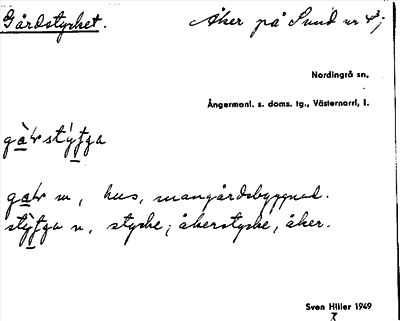 Gårdstycket. Åker på Sund nr
Nordingrå sn.
Ångermanl. s. doms. tg., Västernorrl. l.
m, hus, mangårdsbyggnad.
n, stycke; åkerstycke, åker.
Sven Hiller 1949